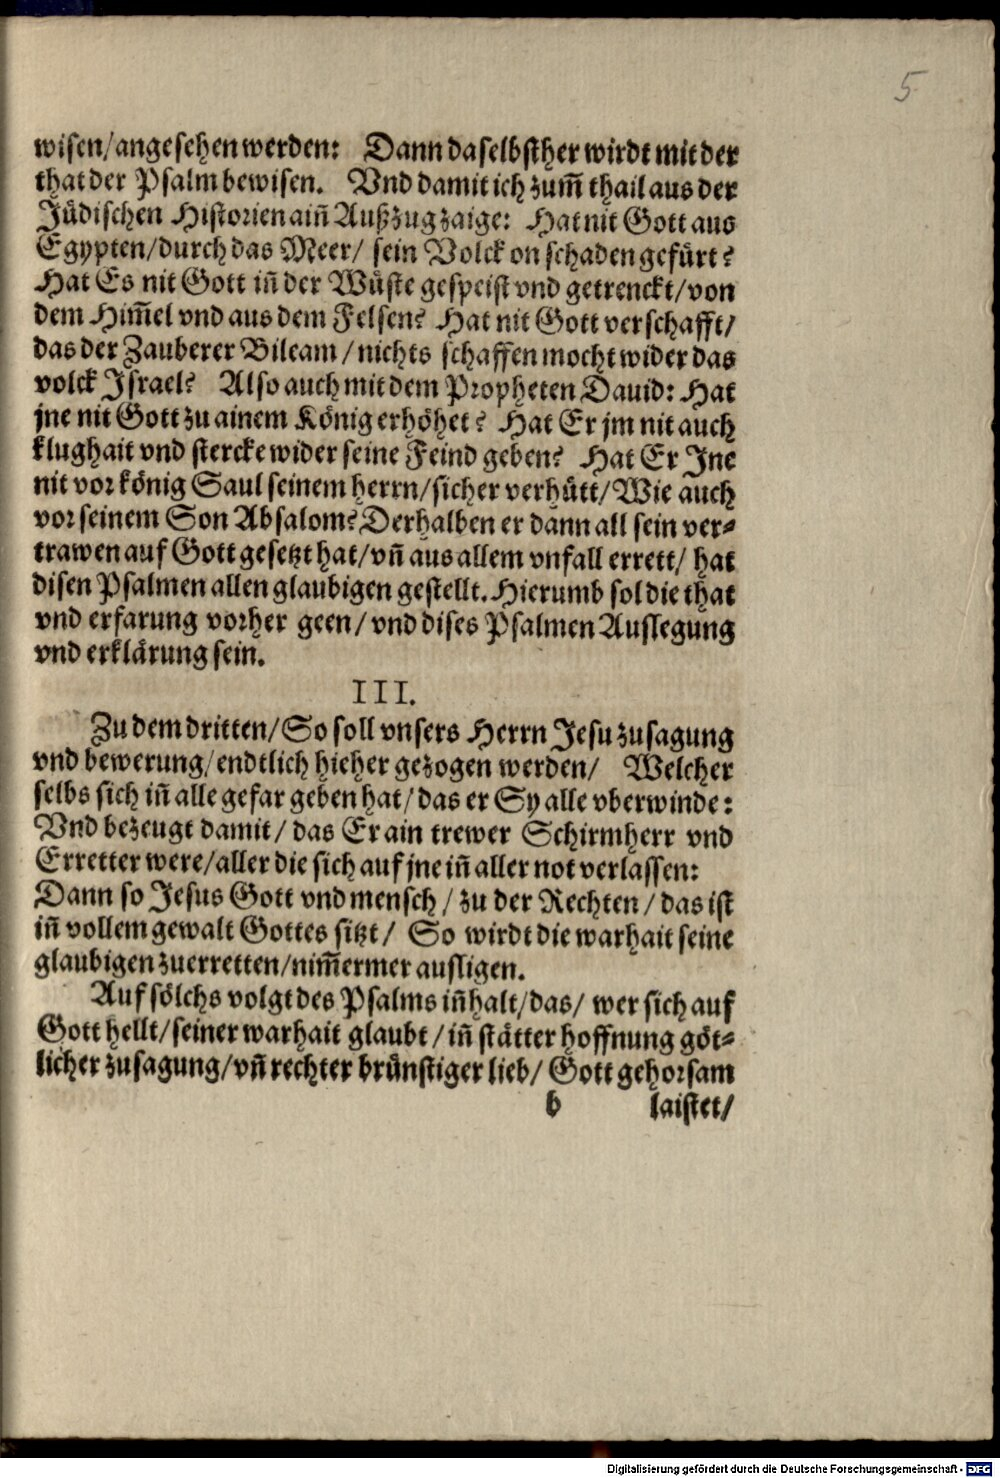 5
wisen/angesehen werden: Dann daselbsther wirdt mit der
that der Psalm bewisen. Vnd damit ich zum̃ thail aus der
Jüdischen Historien aiñ Außzug zaige: Hat nit Gott aus
Egypten/durch das Meer/ sein Volck on schaden gefürt?
Hat Es nit Gott iñ der Wüste gespeist vnd getrenckt/von
dem Him̃el vnd aus dem Felsen? Hat nit Gott verschafft/
das der Zauberer Bileam/nichts schaffen mocht wider das
volck Israel? Also auch mit dem Propheten Dauid: Hat
jne nit Gott zu ainem König erhöhet? Hat Er jm nit auch
klughait vnd stercke wider seine Feind geben? Hat Er Jne
nit vor könig Saul seinem herrn/sicher verhütt/Wie auch
vor seinem Son Absalom? Derhalben er dann all sein ver-
trawen auf Gott gesetzt hat/vñ aus allem vnfall errett/ hat
disen Psalmen allen glaubigen gestellt. Hierumb sol die that
vnd erfarung vorher geen/ vnd dises Psalmen Auslegung
vnd erklärung sein.
III.
Zu dem dritten/So soll vnsers Herrn Jesu zusagung
vnd bewerung/endtlich hieher gezogen werden/ Welcher
selbs sich iñ alle gefar geben hat/das er Sy alle vberwinde:
Vnd bezeugt damit/ das Er ain trewer Schirmherr vnd
Erretter were/aller die sich auf jne iñ aller not verlassen:
Dann so Jesus Gott vnd mensch/ zu der Rechten/ das ist
iñ vollem gewalt Gottes sitzt/ So wirdt die warhait seine
glaubigen zuerretten/nim̃ermer ausligen.
Auf sölchs volgt des Psalms iñhalt/das/ wer sich auf
Gott hellt/seiner warhait glaubt/iñ stätter hoffnung göt-
licher zusagung/vñ rechter brünstiger lieb/ Gott gehorsam
b laistet/
Digitalisierung gefördert durch die Deutsche Forschungsgemeinschaft - DFG